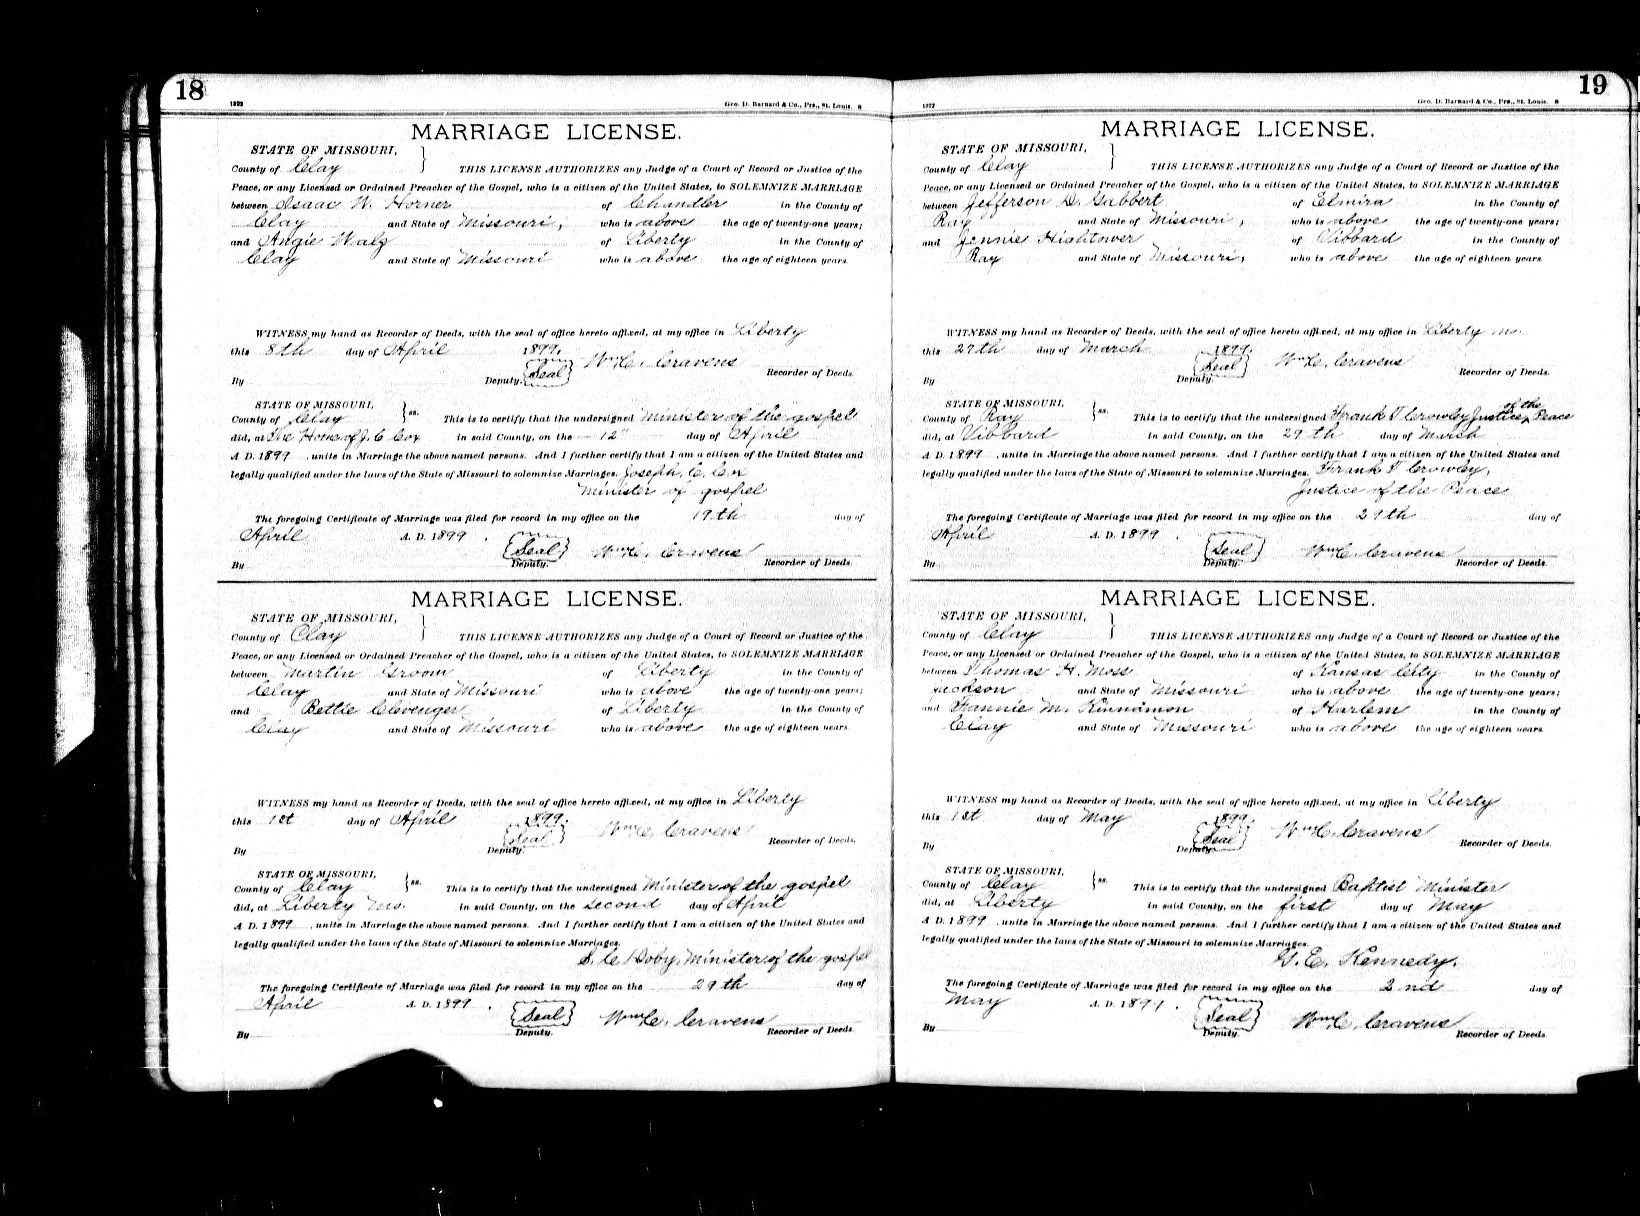 18
1893 Geo. D. Barnard & Co., Prs., St. Louis. 8
MARRIAGE LICENSE.
STATE OF MISSOURI,
County of Clay THIS LICENSE AUTHORIZES any Judge of a Court of Record or Justice of the
Peace, or any Licensed or Ordained Preacher of the Gospel, who is a citizen of the United States, to SOLEMNIZE MARRIAGE
between Isaac W. Horner of Chandler in the County of
Clay and State of Missouri, who is above the age of twenty-one years;
and Angie Walz of Liberty in the County of
Clay and State of Missouri who is above the age of eighteen years.
WITNESS my hand as Recorder of Deeds, with the seal of office hereto affixed, at my office in Liberty
this 8th day of April 1899.
Seal Wm C. Cravens
By Deputy. Recorder of Deeds.
STATE OF MISSOURI,
County of Clay ss. This is to certify that the undersigned Minister of the gospel
did, at The Home of J. C Cox in said County, on the 12" day of April
A. D. 1899, unite in Marriage the above named persons. And I further certify that I am a citizen of the United States and
legally qualified under the laws of the State of Missouri to solemnize Marriages. Joseph. C. Cox
Minister of gospel
The foregoing Certificate of Marriage was filed for record in my office on the 19th day of
April A. D. 1899. Seal Wm C. Cravens
By Deputy. Recorder of Deeds.
MARRIAGE LICENSE.
STATE OF MISSOURI,
County of Clay THIS LICENSE AUTHORIZES any Judge of a Court of Record or Justice of the
Peace, or any Licensed or Ordained Preacher of the Gospel, who is a citizen of the United States, to SOLEMNIZE MARRIAGE
between Martin Groom of Liberty in the County of
Clay and State of Missouri who is above the age of twenty-one years;
and Bettie Clevenger of Liberty in the County of
Clay and State of Missouri who is above the age of eighteen years
WITNESS my hand as Recorder of Deeds, with the seal of office hereto affixed, at my office in Liberty
this 1st day of April 1899.
Seal Wm C. Cravens
By Deputy. Recorder of Deeds.
STATE OF MISSOURI,
County of Clay ss. This is to certify that the undersigned Minister of the gospel
did, at Liberty Mo. in said County, on the second day of April
A. D. 1899, unite in Marriage the above named persons. And I further certify that I am a citizen of the United States and
legally qualified under the laws of the State of Missouri to solemnize Marriages.
S. C. Doby, Minister of the gospel
The foregoing Certificate of Marriage was filed for record in my office on the 29th day of
April A. D. 1899. Seal Wm C. Cravens
By Deputy. Recorder of Deeds.
19
Geo. D. Barnard & Co., Prs., St. Louis. 8
MARRIAGE LICENSE.
STATE OF MISSOURI,
County of Clay THIS LICENSE AUTHORIZES any Judge of a Court of Record or Justice of the
Peace, or any Licensed or Ordained Preacher of the Gospel, who is a citizen of the United States, to SOLEMNIZE MARRIAGE
between Jefferson D. Gabbert of Elmira in the County of
Ray and State of Missouri, who is above the age of twenty-one years;
and Jennie Hightower of Vibbard in the County of
Ray and State of Missouri, who is above the age of eighteen years.
WITNESS my hand as Recorder of Deeds, with the seal of office hereto affixed, at my office in Liberty Mo.
this 27th day of March 1899.
Seal Wm C. Cravens
By Deputy. Recorder of Deeds.
STATE OF MISSOURI,
County of Ray ss. This is to certify that the undersigned Frank T Crowley Justice of the Peace
did, at Vibbard in said County, on the 29th day of March
A. D. 1899, unite in Marriage the above named persons. And I further certify that I am a citizen of the United States and
legally qualified under the laws of the State of Missouri to solemnize Marriages. Frank T Crowley,
Justice of the Peace
The foregoing Certificate of Marriage was filed for record in my office on the 29th day of
April A. D. 1899. Seal Wm C. Cravens
By Deputy. Recorder of Deeds.
MARRIAGE LICENSE.
STATE OF MISSOURI,
County of Clay THIS LICENSE AUTHORIZES any Judge of a Court of Record or Justice of the
Peace, or any Licensed or Ordained Preacher of the Gospel, who is a citizen of the United States, to SOLEMNIZE MARRIAGE
between Thomas H. Moss of Kansas City in the County of
Jackson and State of Missouri who is above the age of twenty-one years;
and Fannie M. Kinnamon of Harlem in the County of
Clay and State of Missouri who is above the age of eighteen years.
WITNESS my hand as Recorder of Deeds, with the seal of office hereto affixed, at my office in Liberty
this 1st day of May 1899.
Seal Wm C. Cravens
By Deputy. Recorder of Deeds.
STATE OF MISSOURI,
County of Clay ss. This is to certify that the undersigned Baptist Minister
did, at Liberty in said County, on the first day of May
A. D. 1899, unite in Marriage the above named persons. And I further certify that I am a citizen of the United States and
legally qualified under the laws of the State of Missouri to solemnize Marriages.
G. E. Kennedy.
The foregoing Certificate of Marriage was filed for record in my office on the 2nd day of
May A. D. 1899. Seal Wm C. Cravens
By Deputy. Recorder of Deeds.